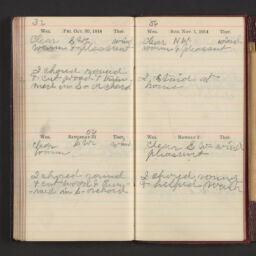 32
Wea. Fri. Oct. 30, 1914 Ther.
Clear S W. wind
warm & pleasant
I chored round
& cut wood &
in S- orchard
Wea. Saturday 31 Ther.
50
Clear S W. wind
warm
I chored round
& cut wood &
in S- orchard
56
Wea. Sun. Nov. 1, 1914 Ther.
Clear N W. wind
warm & pleasant
I staid at
home
Wea. Monday 2 Ther.
Clear S W. wind
pleasant
I chored round
& helped wash